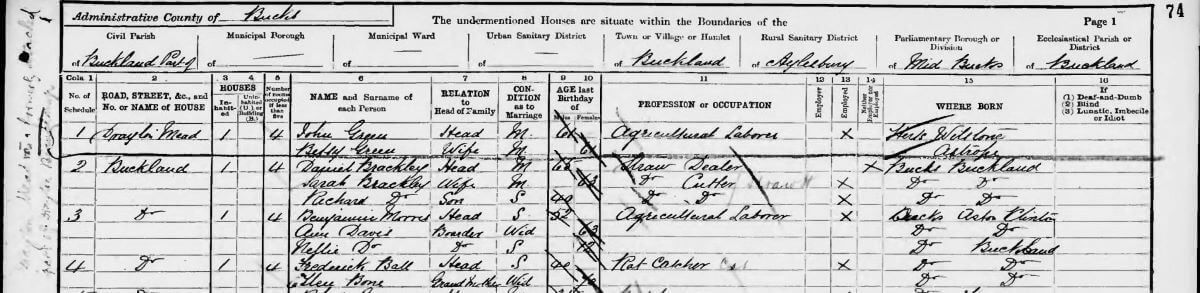 Administrative County of Bucks
The undermentioned Houses are situate within the Boundaries of the
Page 1
74
Civil Parish
of Buckland Part of
Municipal Borough
of
Municipal Ward
of
Urban Sanitary District
of
Town or Village or Hamlet
of Buckland
Rural Sanitary District
of Aylesbury
Parliamentary Borough or Division
of Mid Bucks
Ecclesiastical Parish or District
of Buckland
Cols. 1 2 3 4 5 6 7 8 9 10 11 12 13 14 15 16
No. of Schedule
ROAD, STREET, &c., and No. or NAME of HOUSE
HOUSES
Inhabited
Uninhabited (U.) or Building (B.)
Number of rooms occupied if less than five
NAME and Surname of each Person
RELATION to Head of Family
CONDITION as to Marriage
AGE last Birthday of
Males
Females
PROFESSION or OCCUPATION
Employer
Employed
Neither Employer nor Employed
WHERE BORN
If
(1) Deaf-and-Dumb
(2) Blind
(3) Lunatic, Imbecile or Idiot
1 Drayton Mead 1 4 John Green Head M. Agricultural Laborer X Herts Wilstone
Betsy Green Wife M
2 Buckland 1 4 Daniel Brackley Head M Straw Dealer X Bucks Buckland
Sarah Brackley Wife M 63 Do Cutter X Do Do
Richard Do Son S 40 Do Do X Do Do
3 Do 1 4 Benjamin Morris Head S 52 Agricultural Laborer X Bucks Aston Clinton
Ann Davis Boarder Wid 63 Do Do
Nellie Do Do S 12 Do Buckland
4 Do 1 4 Frederick Ball Head S 40 Rat Catcher X Do Do
Bone Grandmother Wid Do Do